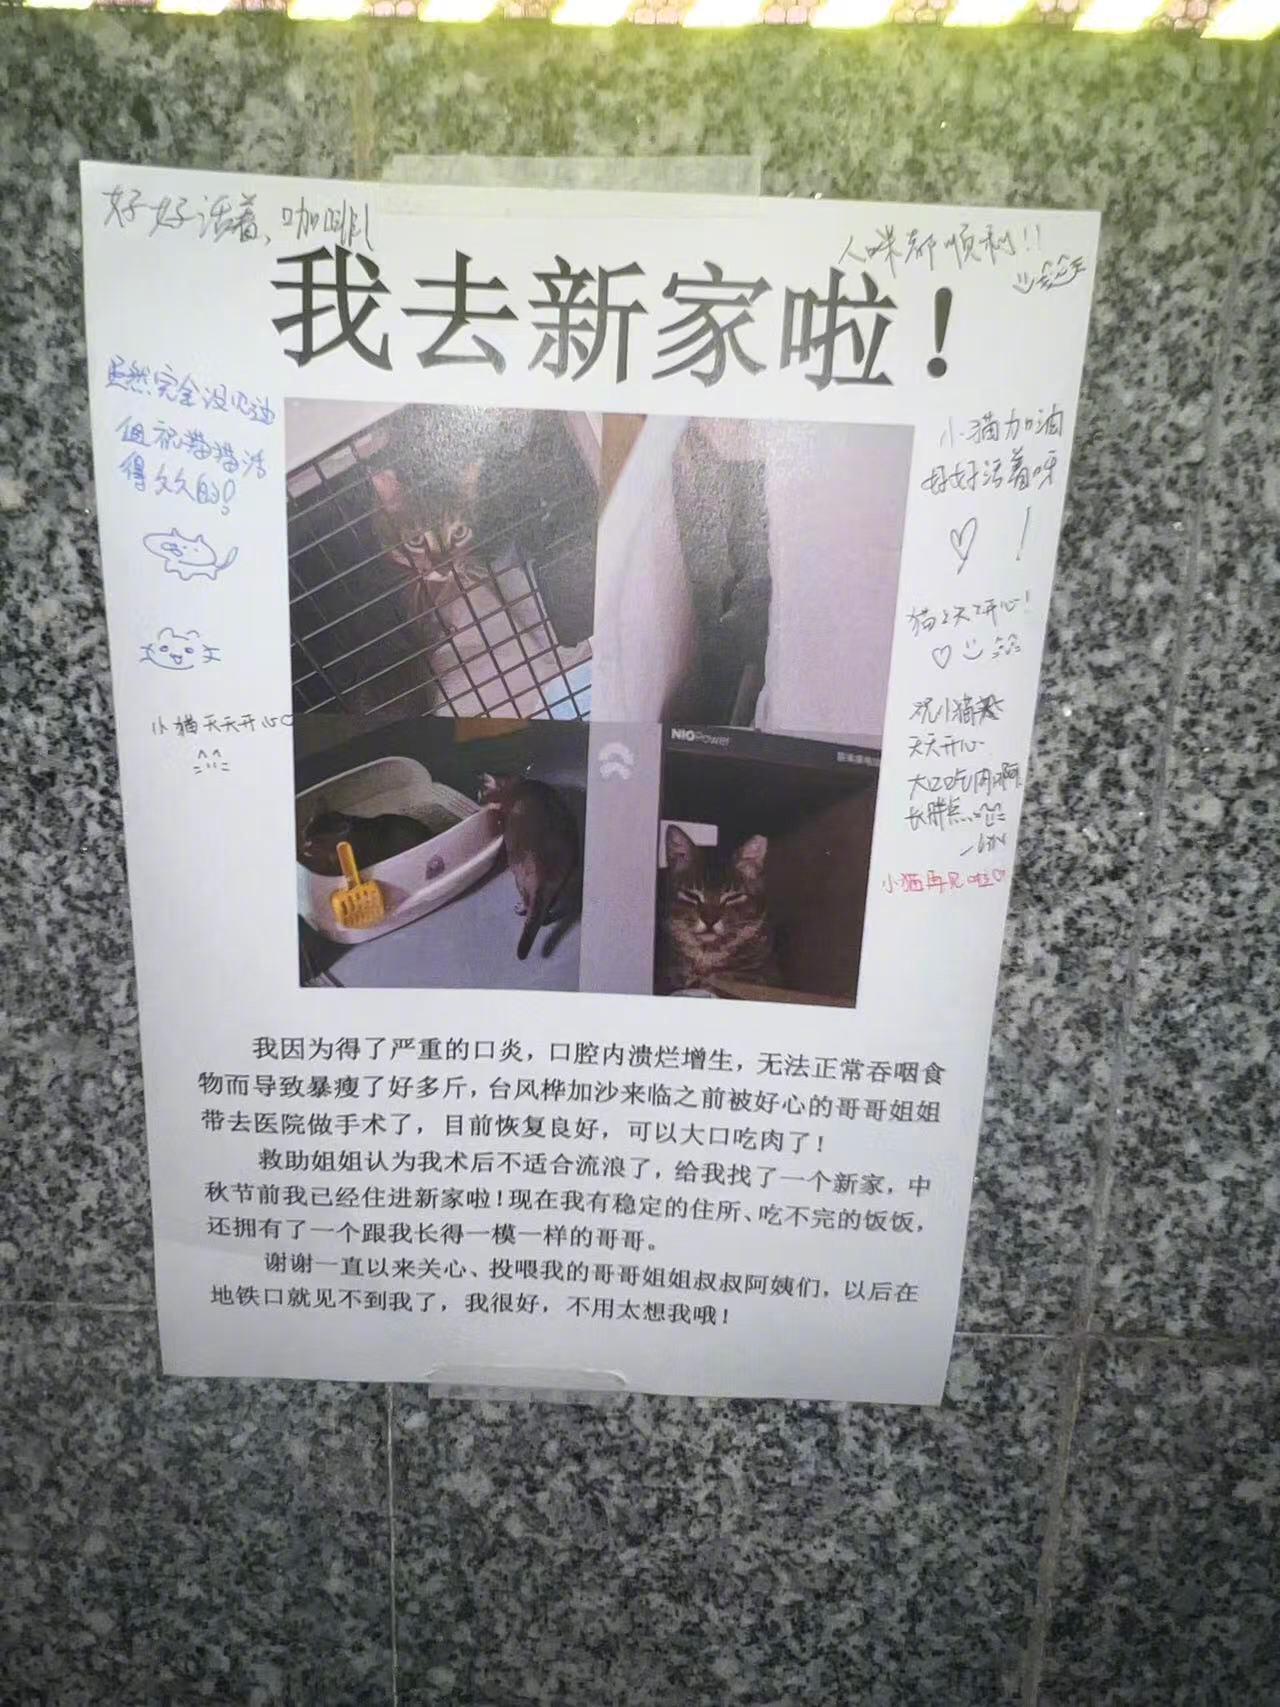 好好活着、咖啡
人咪都顺利!!
我去新家啦！
虽然完全没见过
但祝猫猫活
得久久的!
小猫天天开心
小猫加油
好好活着呀
!
猫天天开心!
祝小猫
天天开心
大口吃肉啊
长胖点
小猫再见啦
NIOPower
我因为得了严重的口炎，口腔内溃烂增生，无法正常吞咽食
物而导致暴瘦了好多斤，台风桦加沙来临之前被好心的哥哥姐姐
带去医院做手术了，目前恢复良好，可以大口吃肉了！
救助姐姐认为我术后不适合流浪了，给我找了一个新家，中
秋节前我已经住进新家啦！现在我有稳定的住所、吃不完的饭饭，
还拥有了一个跟我长得一模一样的哥哥。
谢谢一直以来关心、投喂我的哥哥姐姐叔叔阿姨们，以后在
地铁口就见不到我了，我很好，不用太想我哦！